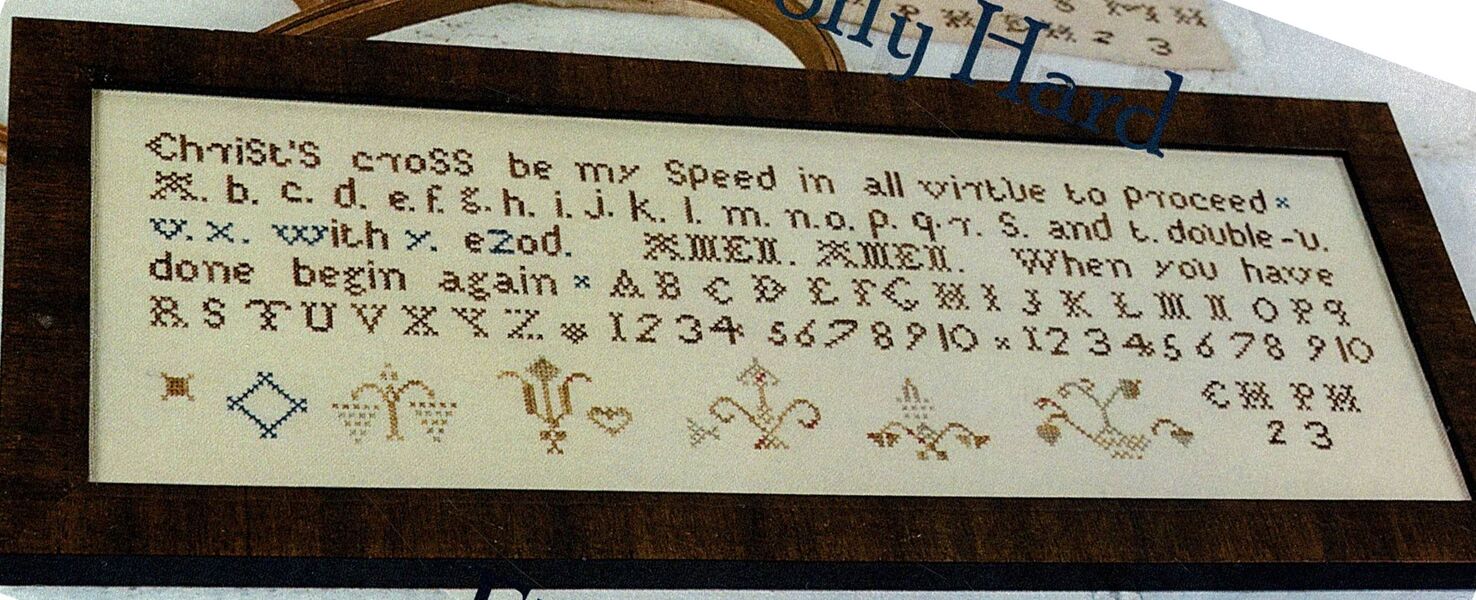 olly Hard
Christ's cross be my Speed in all virtue to proceed ×
A. b. c. d. e. f. g. h. i. j. k. l. m. n. o. p. q. r. S. and t. double-u.
v. x. with y. ezod. AMEN. AMEN. When you have
done begin again × A B C D E F G H I J K L M N O P Q
R S T U V X Y Z 1 2 3 4 5 6 7 8 9 10 × 1 2 3 4 5 6 7 8 9 10
C M P M
2 3